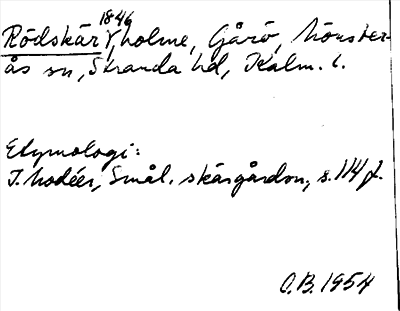 1846
Rödskär, holme, Gårö, Mönster-
ås sn, Stranda hd, Kalm. l.
Etymologi:
I. Modéer, Smål. skärgården, s. 114 f.
O.B. 1954